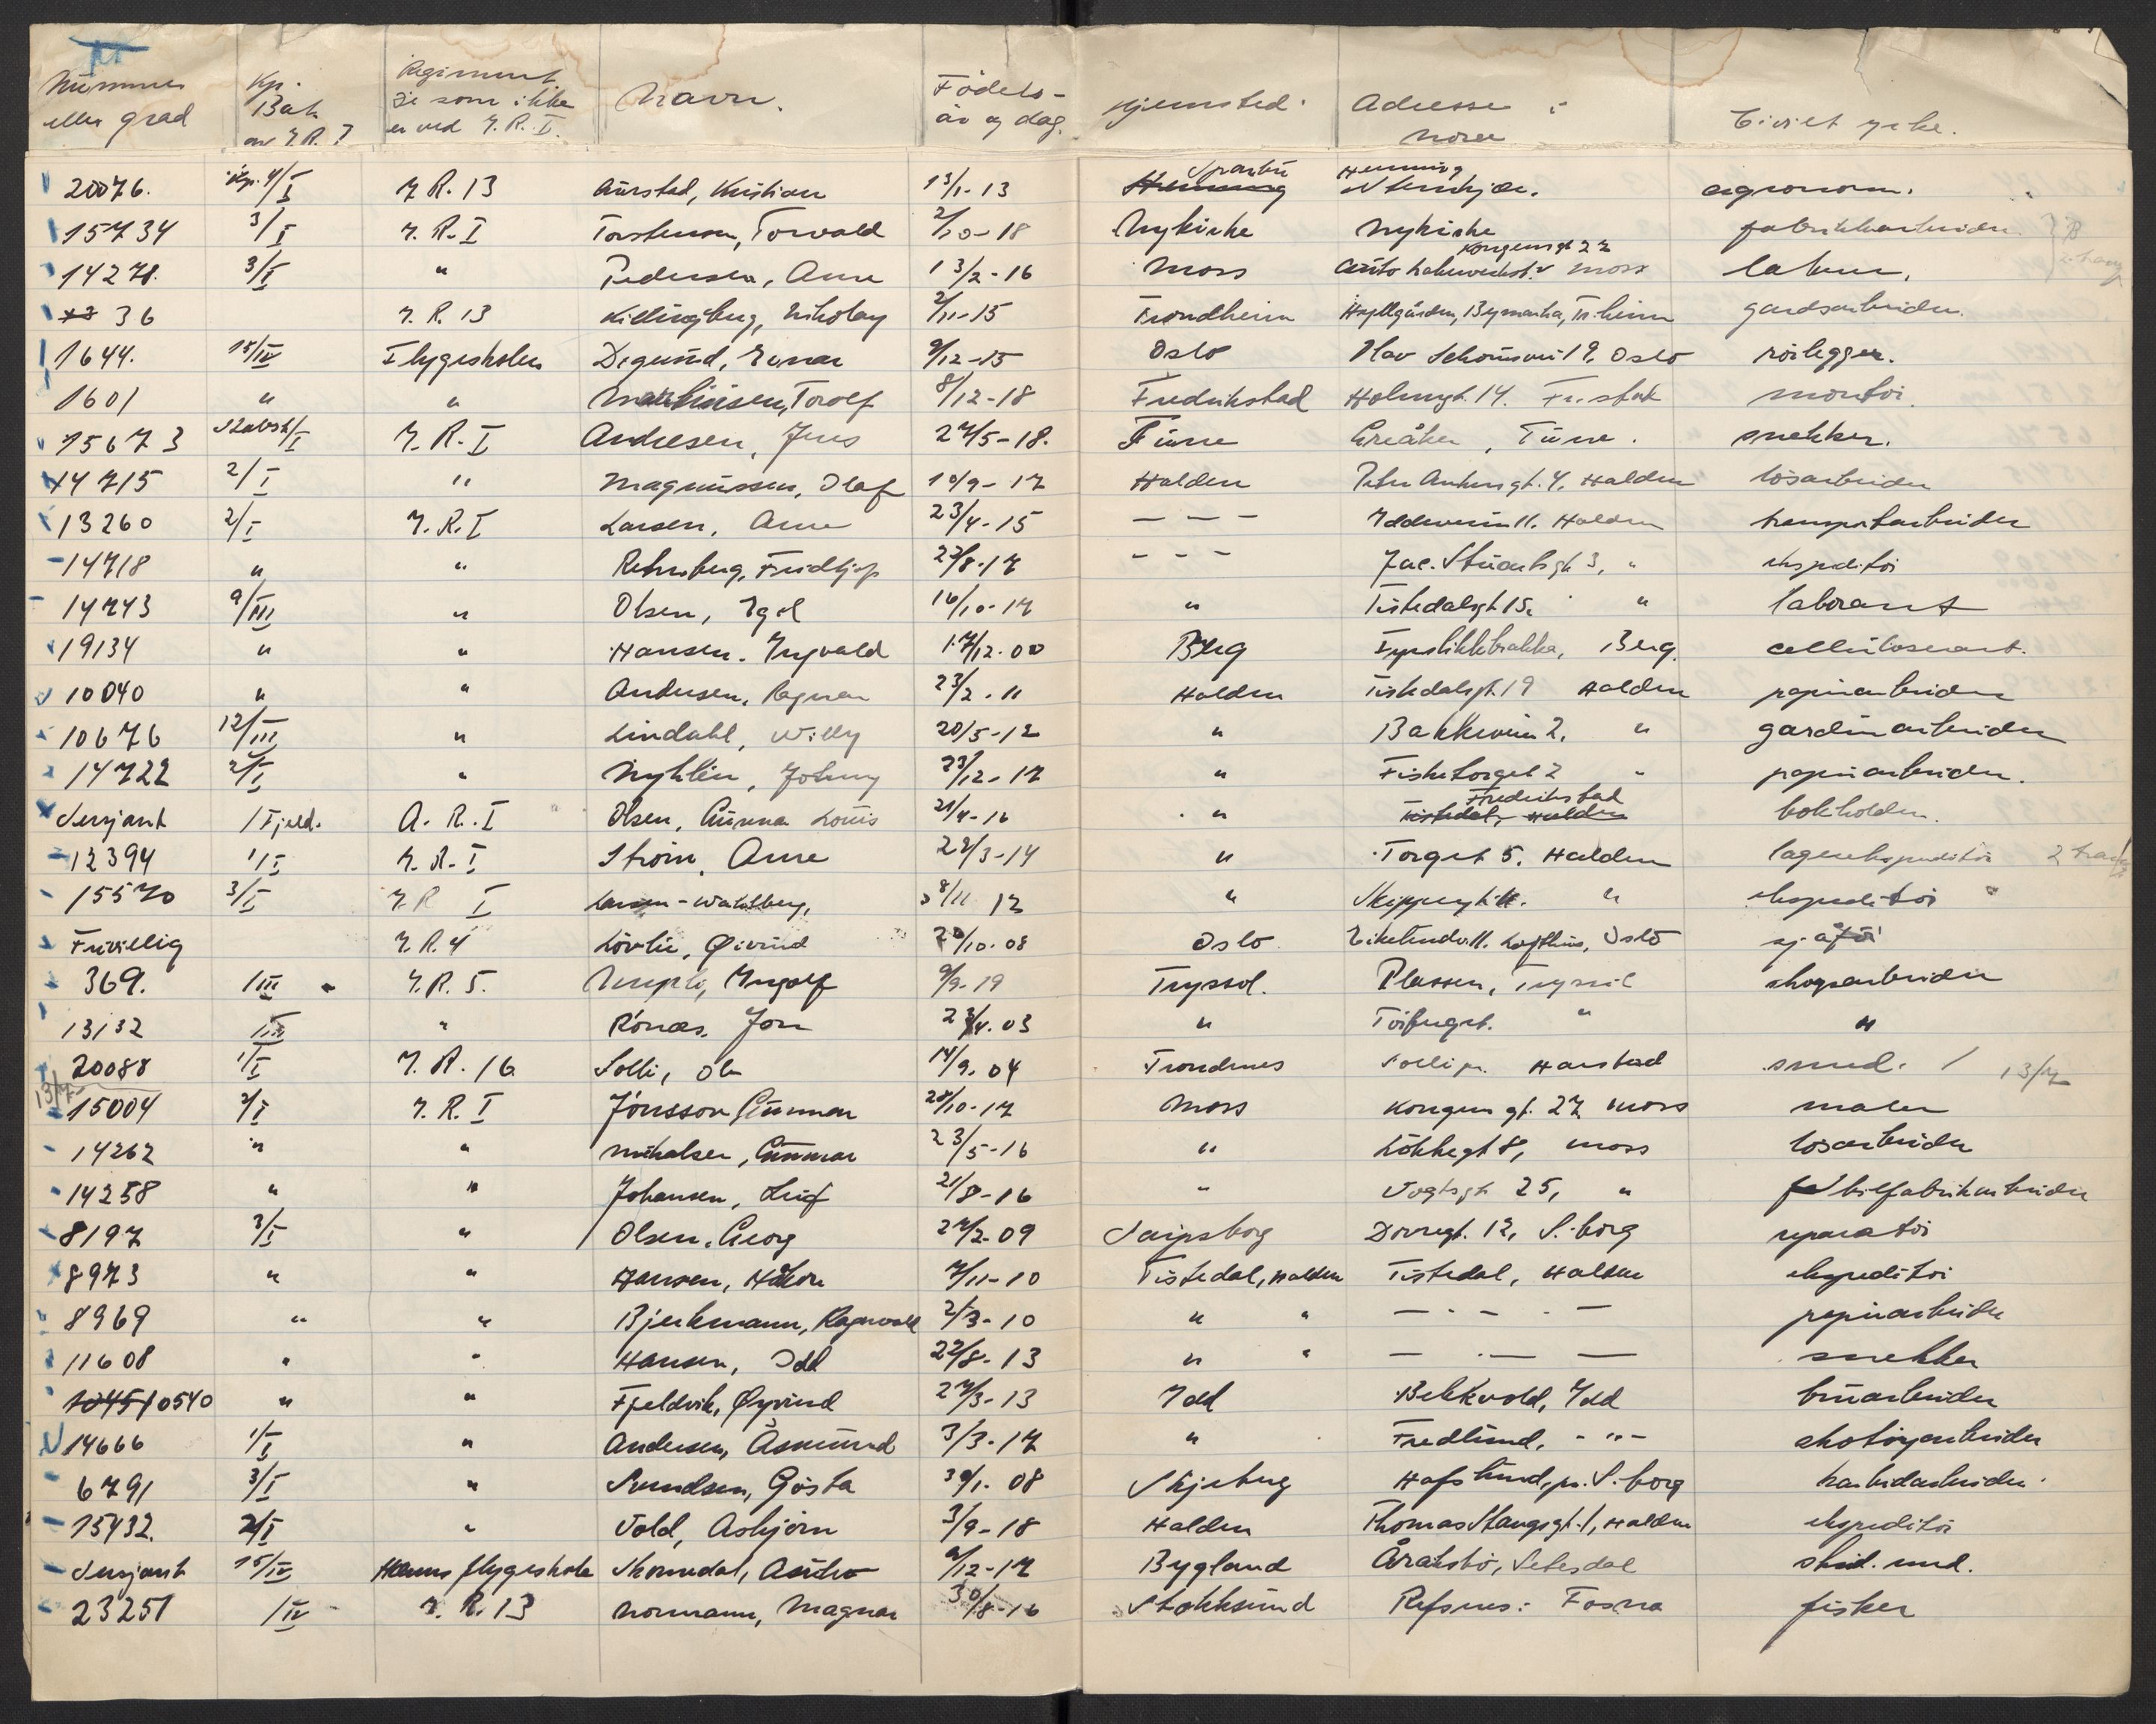 Nummer eller grad | Kp. Bat. av I.R. I | Regiment de som ikke er ved I.R. I. | Navn. | Födels- år og dag. | Hjemsted. | Adresse i Norge | Civilt yrke.
20076. | Kp. 4/I | I.R. 13 | Aurstad, Kristian | 13/1-13 | Sparbu | Henning Stenkjær. | agronom.
15734 | 3/I | I.R. I | Torstensen, Torvald | 2/10-18 | Nykirke | Nykirke | fabrikkarbeider
14278. | 3/I | " | Pedersen, Arne | 13/2-16 | Moss | Kongensgt 27 Moss
36 | I.R. 13 | Killingberg, Nikolay | 2/11-15 | Trondheim | Bymarka, Tr.heim | gardsarbeider.
1644. | 15/IV | Flygeskolen | Degerud, Einar | 9/12-15 | Oslo | Olav Schousvei 19, Oslo | rörlegger.
1601 | " | " | Martinsen, Torolf | 8/12-18 | Fredrikstad | Holmegt. 14. Fr.stad | montör.
15673 | Stabsk/I | I.R. I | Andresen, Jens | 27/5-18. | Tune | Greåker, Tune. | snekker.
14715 | 2/I | " | Magnussen, Olaf | 10/9-17 | Halden | Petter Ankersgt. 4, Halden | lösarbeider
13260 | 2/I | I.R. I | Larsen, Arne | 23/4-15 | – – – | Iddeveien 11. Halden | transportarbeider
14718 | " | " | Rehnberg, Fridtjof | 27/8-17 | – – – | Jac. Stuartsgt 3, " | ekspeditör
14743 | 9/III | " | Olsen, Egil | 16/10-17 | " | Tistedalsgt 15, " | laborant
19134 | " | " | Hansen, Ingvald | 17/12-00 | Berg | Fyrstikkbakka, Berg. | cellulosearb.
10040 | " | " | Andersen, Ragnar | 23/2-11 | Halden | Tistedalsgt. 19 Halden | papirarbeider
10676 | 12/III | " | Lindahl, Willy | 20/5-12 | " | Bakkeveien 2. " | gardinarbeider
14722 | 2/I | " | Nyhlin, Johnny | 23/12-17 | " | Fisketorget 2 " | papirarbeider.
Sersjant | 1 Fjeld. | A.R. I | Olsen, Gunnar Louis | 21/4-16 | " | Fredrikstad Tistedal, Halden | bokholder.
12394 | 1/I | I.R. I | Ström, Arne | 28/3-14 | " | Torget 5, Halden | lagerekspeditör
15570 | 3/I | I.R. I | Larsen-Wahlberg, | 8/11 12 | " | " | ekspeditör
Frivillig | I.R. 4 | Lövlie, Øivind | 20/10-08 | Oslo | Oslo | sjåför
369. | /III | I.R. 5. | Ingolf | 9/9-19 | Trysil. | Plassen, Trysil | skogsarbeider
13132 | III | " | Rönes, Jon | 23/4-03 | " | " | "
20088 | 1/I | I.R. 16 | Solli, Ole | 14/9-04 | Trondenes | Harstad | smed. 13/7
13/7
15004 | 2/I | I.R. I | Jonsson, Gunnar | 28/10-17 | Moss | Kongensgt. 27 Moss | maler
14262 | " | " | Mikalsen, Gunnar | 23/5-16 | " | Lökkegt 8, Moss | lösarbeider
14258 | " | " | Johansen, Leif | 21/8-16 | " | Vogtsgt 25, " | bilfabrikarbeider
8197 | 3/I | " | Olsen, Georg | 27/2-09 | Sarpsborg | Dovregt. 12, S.borg | reparatör
8973 | " | " | Hansen, Håkon | 7/11-10 | Tistedal, Halden | Tistedal, Halden | ekspeditör
8969 | " | " | Bjerkmann, Ragnvald | 2/3-10 | " " | – · – · – | papirarbeider
11608 | " | " | Hansen, Odd | 22/8-13 | " " | – · – – | snekker
10451 0540 | " | " | Fjeldvik, Øyvind | 27/3-13 | Idd | Bekkvold, Idd | bruarbeider
14666 | 1/I | " | Andersen, Åsmund | 3/3-17 | " | Fredlund, - " - | skotöyarbeider
6791 | 3/I | " | Svendsen, Gösta | 30/1-08 | Skjeberg | Hafslund, pr. S.borg | karbidarbeider.
15432. | 2/I | " | Vold, Asbjörn | 3/9-18 | Halden | Thomas Stangsgt. 1, Halden | ekspeditör
Sersjant | 15/IV | Hærens flygeskole | Skomedal, Arthur | 9/12-17 | Bygland | Åraksbö, Setesdal | stud. med.
23251 | /IV | I.R. 13 | Normann, Magnar | 30/8-16 | Stokksund | Refsnes: Fosna | fisker